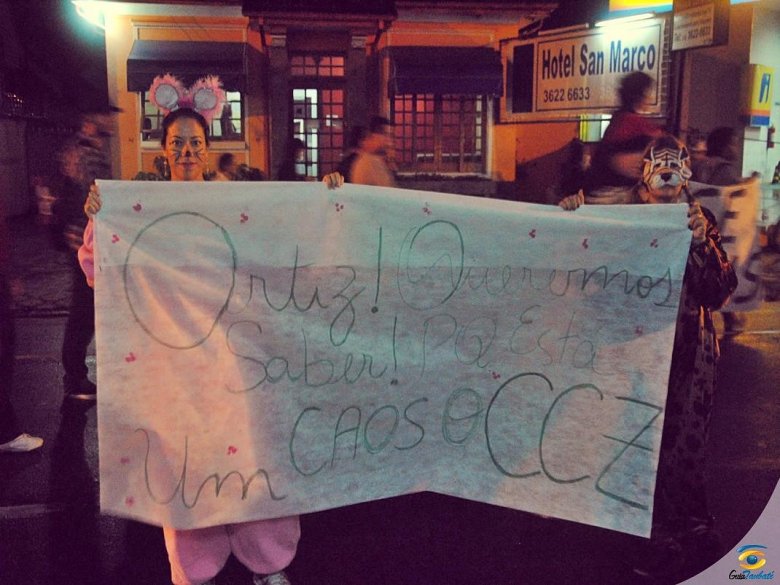 Hotel San Marco
3622 6633
Ortiz! Queremos
Saber! PQ Está
Um CAOS O CCZ
GuiaTaubaté